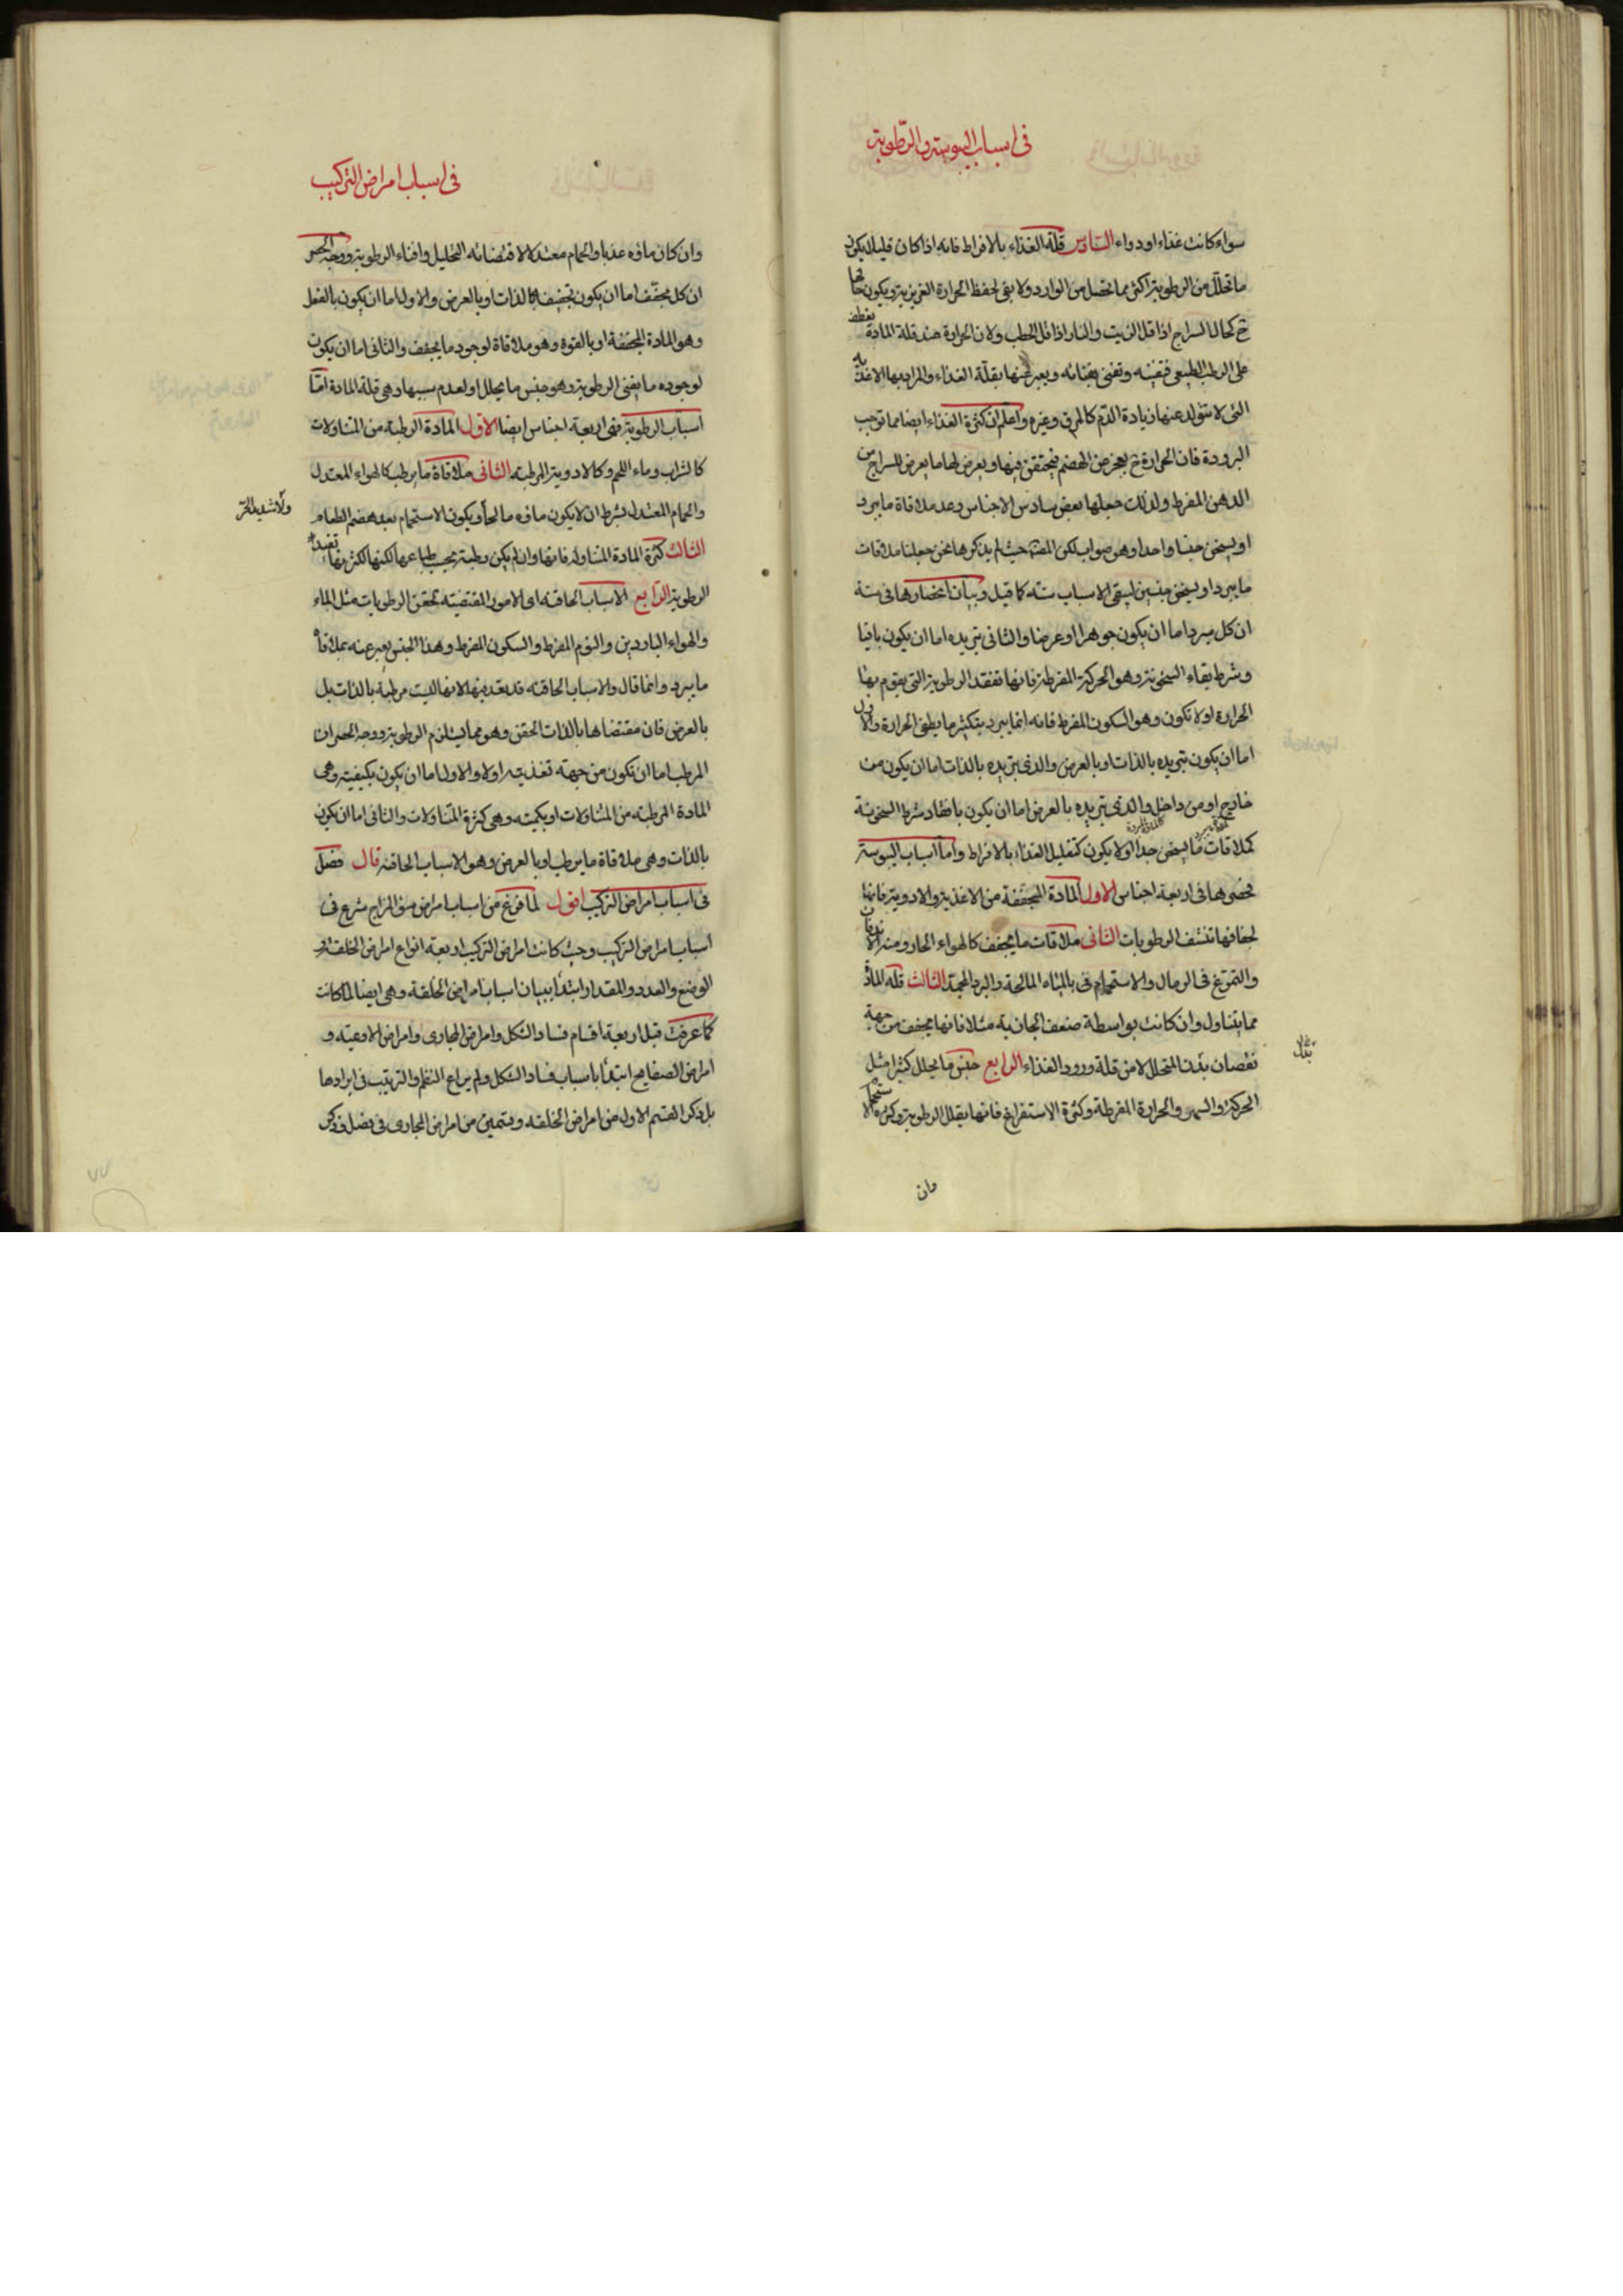 فى اسباب اليبوسة والرطوبة
سواء كانت غذاء او دواء السادس قلة الغذاء بالافراط فانه اذا كان قليلا يكون
ما تحلل من الرطوبة اكثر مما تحصل من الوارد ولا يفى لحفظ الحرارة الغريزية ويكون حالها
ح كحال السراج اذا قل الزيت والنار اذا قل الحطب ولان الحرارة عند قلة المادة تعطف
على الرطب الطبيعى فتفنيه وتفنى بفنائه ويعبر عنها بقلة الغذاء والمراد بها الاغذية
التى لا يتولد عنها زيادة الدم كالمرق وغيره واعلم ان كثرة الغذاء ايضا مما توجب
البرودة فان الحرارة ح يعجز عن الهضم فيحتقن فيها ويعرض لها ما يعرض للسراج من
الدهن المفرط ولذلك جعلها بعض سادس الاجناس وعد ملاقاة ما يبرد
او يسخن جنسا واحدا وهو صواب لكن المص حيث لم يذكرها نحن جعلنا ملاقات
ما يبرد او يسخن جنسين ليبقى الاسباب ستة كما قيل وبيان انحصارها فى ستة
ان كل مبرد اما ان يكون جوهرا او عرضا والثانى تبريده اما ان يكون بافناء
وشرط بقاء السخونة وهو الحركة المفرطة فانها تفقد الرطوبة التى يقوم بها
الحرارة او لا تكون وهو السكون المفرط فانه انما يبرد بتكثير ما يطفى الحرارة والاول
اما ان يكون تبريده بالذات او بالعرض والذى تبريده بالذات اما ان يكون من
خارج او من داخل والذى تبريده بالعرض اما ان يكون بافقاد شرط السخونة
كملاقات ما يسخن جدا او لا يكون كتقليل الغذاء بالافراط واما اسباب اليبوسة
فحصرها فى اربعة اجناس الاول المادة المجففة من الاغذية والادوية فانها
لجفافها تنشف الرطوبات الثانى ملاقات ما يجفف كالهواء الحار ومنه الاندفان
والتمرغ فى الرمال والاستحمام فى بالمياه المالحة والبرد المجمد الثالث قلة المادة
مما يتناول وان كانت بواسطة ضعف الجاذبة مثلا فانها يجفف من جهة
نقصان بدل المتحلل لا من قلة ورود الغذاء الرابع جنس ما يحلل كثيرا مثل
بدل
الحركة والسهر والحرارة المفرطة وكثرة الاستفراغ فانها يقلل الرطوبة وكثرة الاستحمام
وان
فى اسباب امراض التركيب
وان كان ماؤه عذبا والحمام معتدلا لاقتضائه التحليل وافناء الرطوبة ووجه الحصر
ان كل مجفف اما ان يكون تجفيفه بالذات او بالعرض والاول اما ان يكون بالفعل
وهو المادة المجففة او بالقوة وهو ملاقاة لوجود ما يجفف والثانى اما ان يكون
لوجوده ما يفنى الرطوبة وهو جنس ما يحلل او لعدم سببها وهى قلة المادة اما
اسباب الرطوبة فهى اربعة اجناس ايضا الاول المادة الرطبة من المتناولات
كالشراب وماء اللحم وكالادوية المرطبة الثانى ملاقاة ما يرطب كالهواء المعتدل
والحمام المعتدل بشرط ان لا يكون ماؤه مالحا ويكون الاستحمام بعد هضم الطعام
ولا شديد الحر
الثالث كثرة المادة المتناولة فانها وان لم يكن رطبة بحسب طباعها لكنها لكثرتها تفيد
الرطوبة الرابع الاسباب الحاقنة اى الامور المقتضية لحقن الرطوبات مثل الماء
والهواء الباردين والنوم المفرط والسكون المفرط وهذا الجنس يعبر عنه بملاقاة
ما يبرد وانما قال والاسباب الحاقنة قد يعد منها لانها ليست مرطبة بالذات بل
بالعرض فان مقتضاها بالذات الحقن وهو مما يستلزم الرطوبة ووجه الحصر ان
المرطب اما ان تكون من جهة تغذيته او لا والاول اما ان يكون بكيفيته وهى
المادة المرطبة من المتناولات او بكميته وهى كثرة المتناولات والثانى اما ان يكون
بالذات وهى ملاقاة ما يرطب او بالعرض وهو الاسباب الحاقنة قال فصل
فى اسباب امراض التركيب اقول لما فرغ من اسباب امراض سوء المزاج شرع فى
اسباب امراض التركيب وحيث كانت امراض التركيب اربعة انواع امراض الخلقة و
الوضع والعدد والمقدار ابتدأ ببيان اسباب امراض الخلقة وهى ايضا لما كانت
كما عرفت قبل اربعة اقسام فساد الشكل وامراض المجارى وامراض الاوعية و
امراض الصفايح ابتدأ باسباب فساد الشكل ولم يراع النظم والترتيب فى ايرادها
بل ذكر القسم الاول من امراض الخلقة وقسمين من امراض المجارى فى فصل وذكر
٧٧